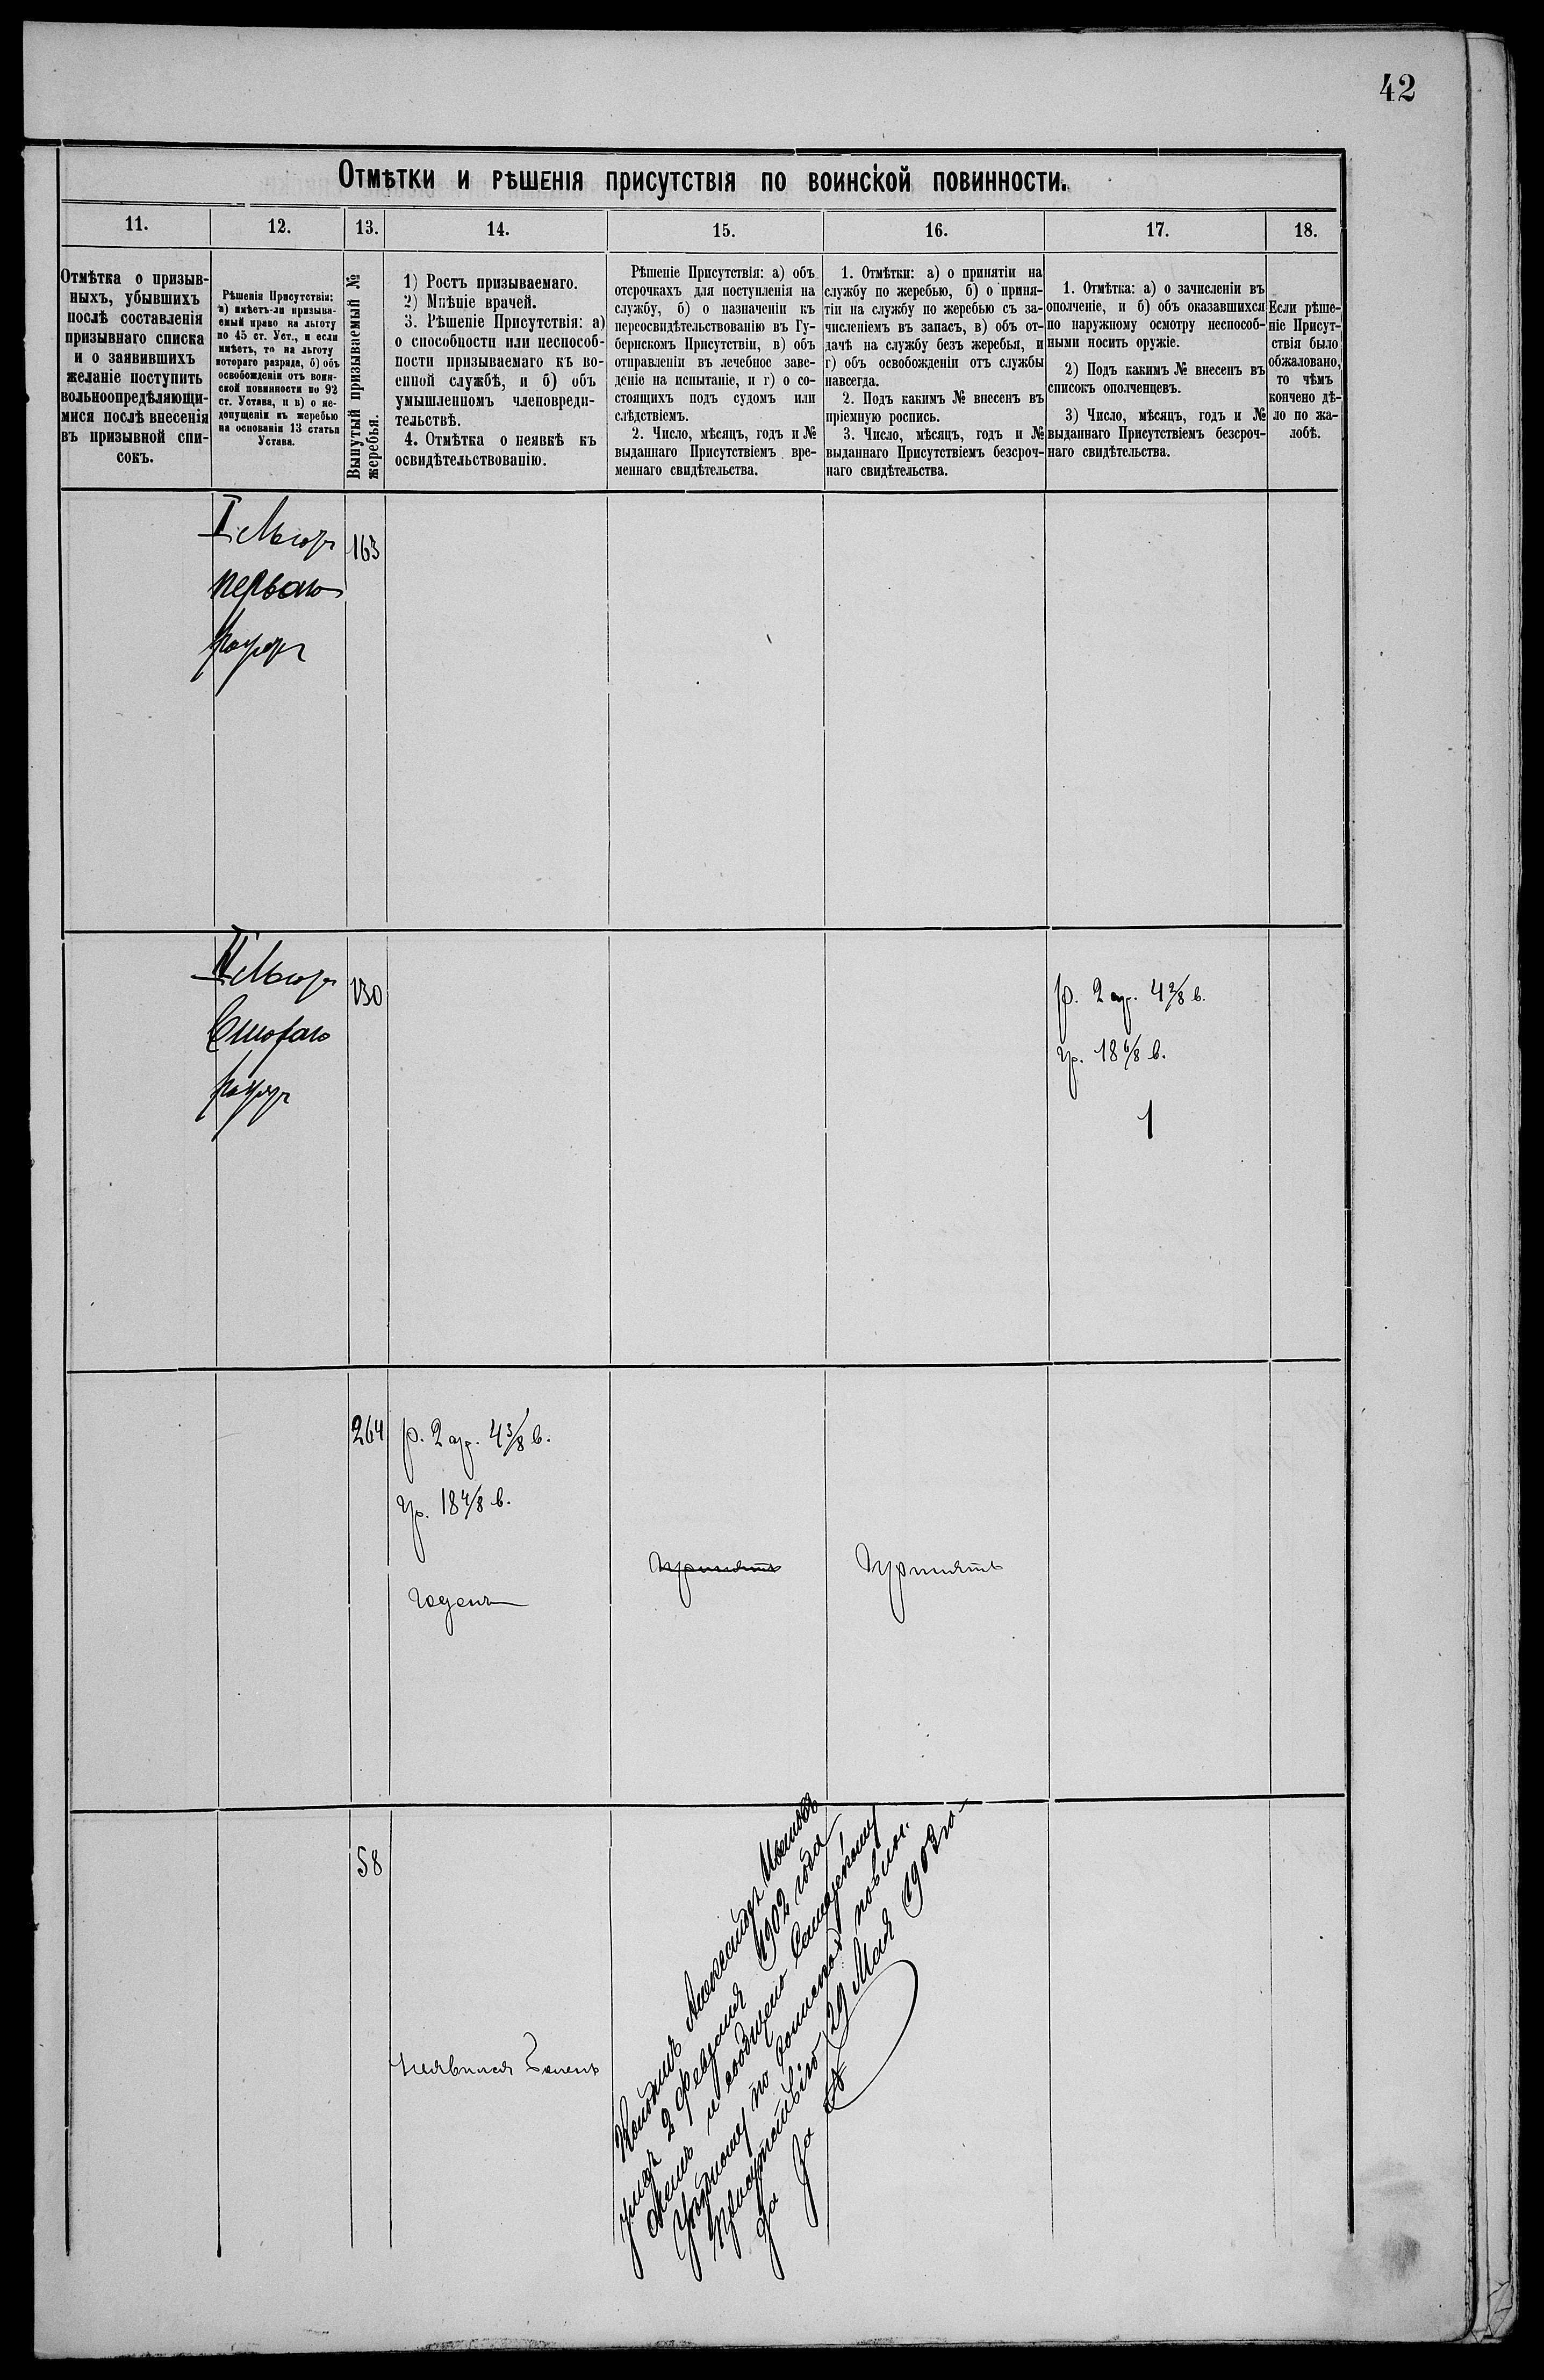 42
Отмѣтки и рѣшенія присутствія по воинской повинности.
11.
12.
13.
14.
15.
16.
17.
18.
Отмѣтка о призыв-
ныхъ, убывшихъ
послѣ составленія
призывнаго списка
и о заявившихъ
желаніе поступить
вольноопредѣляющи-
мися послѣ внесенія
въ призывной спи-
сокъ.
Рѣшенія Присутствія:
а) имѣетъ-ли призыва-
емый право на льготу
по 45 ст. Уст., и если
имѣетъ, то на льготу
котораго разряда, б) объ
освобожденіи отъ воин-
ской повинности по 92
ст. Устава, и в) о не-
допущеніи къ жеребью
на основаніи 13 статьи
Устава.
Вынутый призываемый №
жеребья.
1) Ростъ призываемаго.
2) Мнѣніе врачей.
3. Рѣшеніе Присутствія: а)
о способности или неспособ-
ности призываемаго къ во-
енной службѣ, и б) объ
умышленномъ членовреди-
тельствѣ.
4. Отмѣтка о неявкѣ къ
освидѣтельствованію.
Рѣшеніе Присутствія: а) объ
отсрочкахъ для поступленія на
службу, б) о назначеніи къ
переосвидѣтельствованію въ Гу-
бернскомъ Присутствіи, в) объ
отправленіи въ лечебное заве-
деніе на испытаніе, и г) о со-
стоящихъ подъ судомъ или
слѣдствіемъ.
2. Число, мѣсяцъ, годъ и №
выданнаго Присутствіемъ вре-
меннаго свидѣтельства.
1. Отмѣтки: а) о принятіи на
службу по жеребью, б) о приня-
тіи на службу по жеребью съ за-
численіемъ въ запасъ, в) объ от-
дачѣ на службу безъ жеребья, и
г) объ освобожденіи отъ службы
навсегда.
2. Подъ какимъ № внесенъ въ
пріемную роспись.
3. Число, мѣсяцъ, годъ и №
выданнаго Присутствіемъ безсроч-
наго свидѣтельства.
1. Отмѣтка: а) о зачисленіи въ
ополченіе, и б) объ оказавшихся
по наружному осмотру неспособ-
ными носить оружіе.
2) Подъ какимъ № внесенъ въ
списокъ ополченцевъ.
3) Число, мѣсяцъ, годъ и №
выданнаго Присутствіемъ безсроч-
наго свидѣтельства.
Если рѣше-
ніе Присут-
ствія было
обжаловано,
то чѣмъ
кончено дѣ-
ло по жа-
лобѣ.
I Льгор
163
перваго
разряд
II Льгор
130
Втораго
разряд
р. 2 ар. 4 2/8 в.
гр. 18 6/8 в.
1
264
р. 2 ар. 4 3/8 в.
гр. 18 4/8 в.
годенъ
принять
принять
58
Неявился боленъ
Александръ Ивановъ
умеръ 2 февраля 1902 года
и сообщено
Уѣздному по воинской повин.
Присутствію 29 Мая 1903 го
за